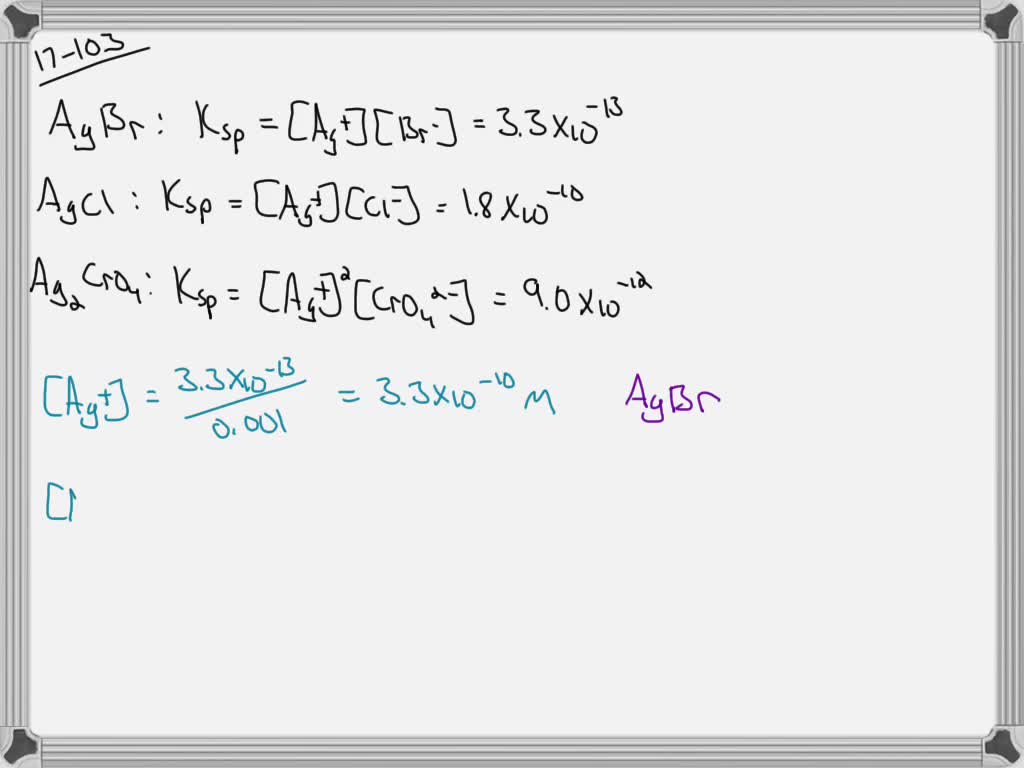 17-103
AgBr: Ksp = [Ag+][Br-] = 3.3x10⁻¹³
AgCl: Ksp = [Ag+][Cl-] = 1.8x10⁻¹⁰
Ag₂CrO₄: Ksp = [Ag+]²[CrO₄²⁻] = 9.0x10⁻¹²
[Ag+] = 3.3x10⁻¹³ / 0.001 = 3.3x10⁻¹⁰ M AgBr
[A